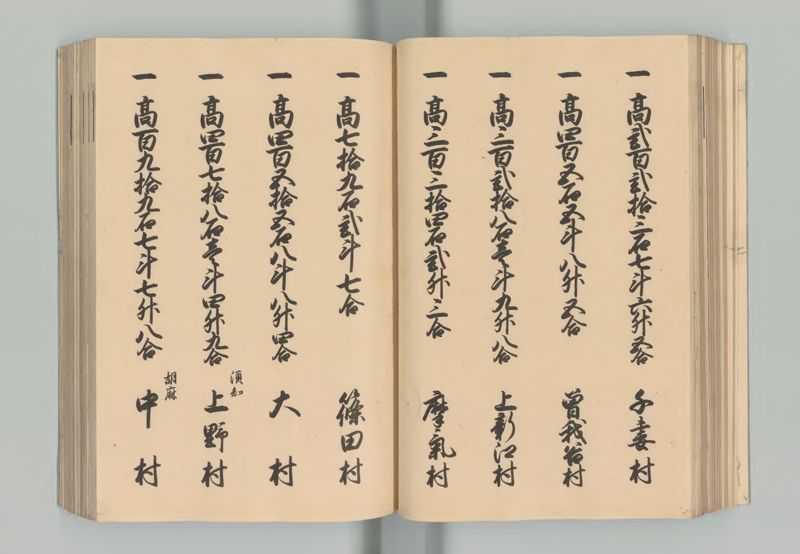 一 高弐百弐拾三石七斗六升五合 千妻村
一 高四百五石五斗八升五合 曽我谷村
一 高三百弐拾八石壱斗九升八合 上新江村
一 高三百三拾四石弐升三合 摩氣村
一 高七拾九石弐斗七合 篠田村
一 高四百五拾五石八斗八升四合 大村
一 高四百七拾八石壱斗四升九合 須知 上野村
一 高百九拾九石七斗七升八合 胡麻 中村